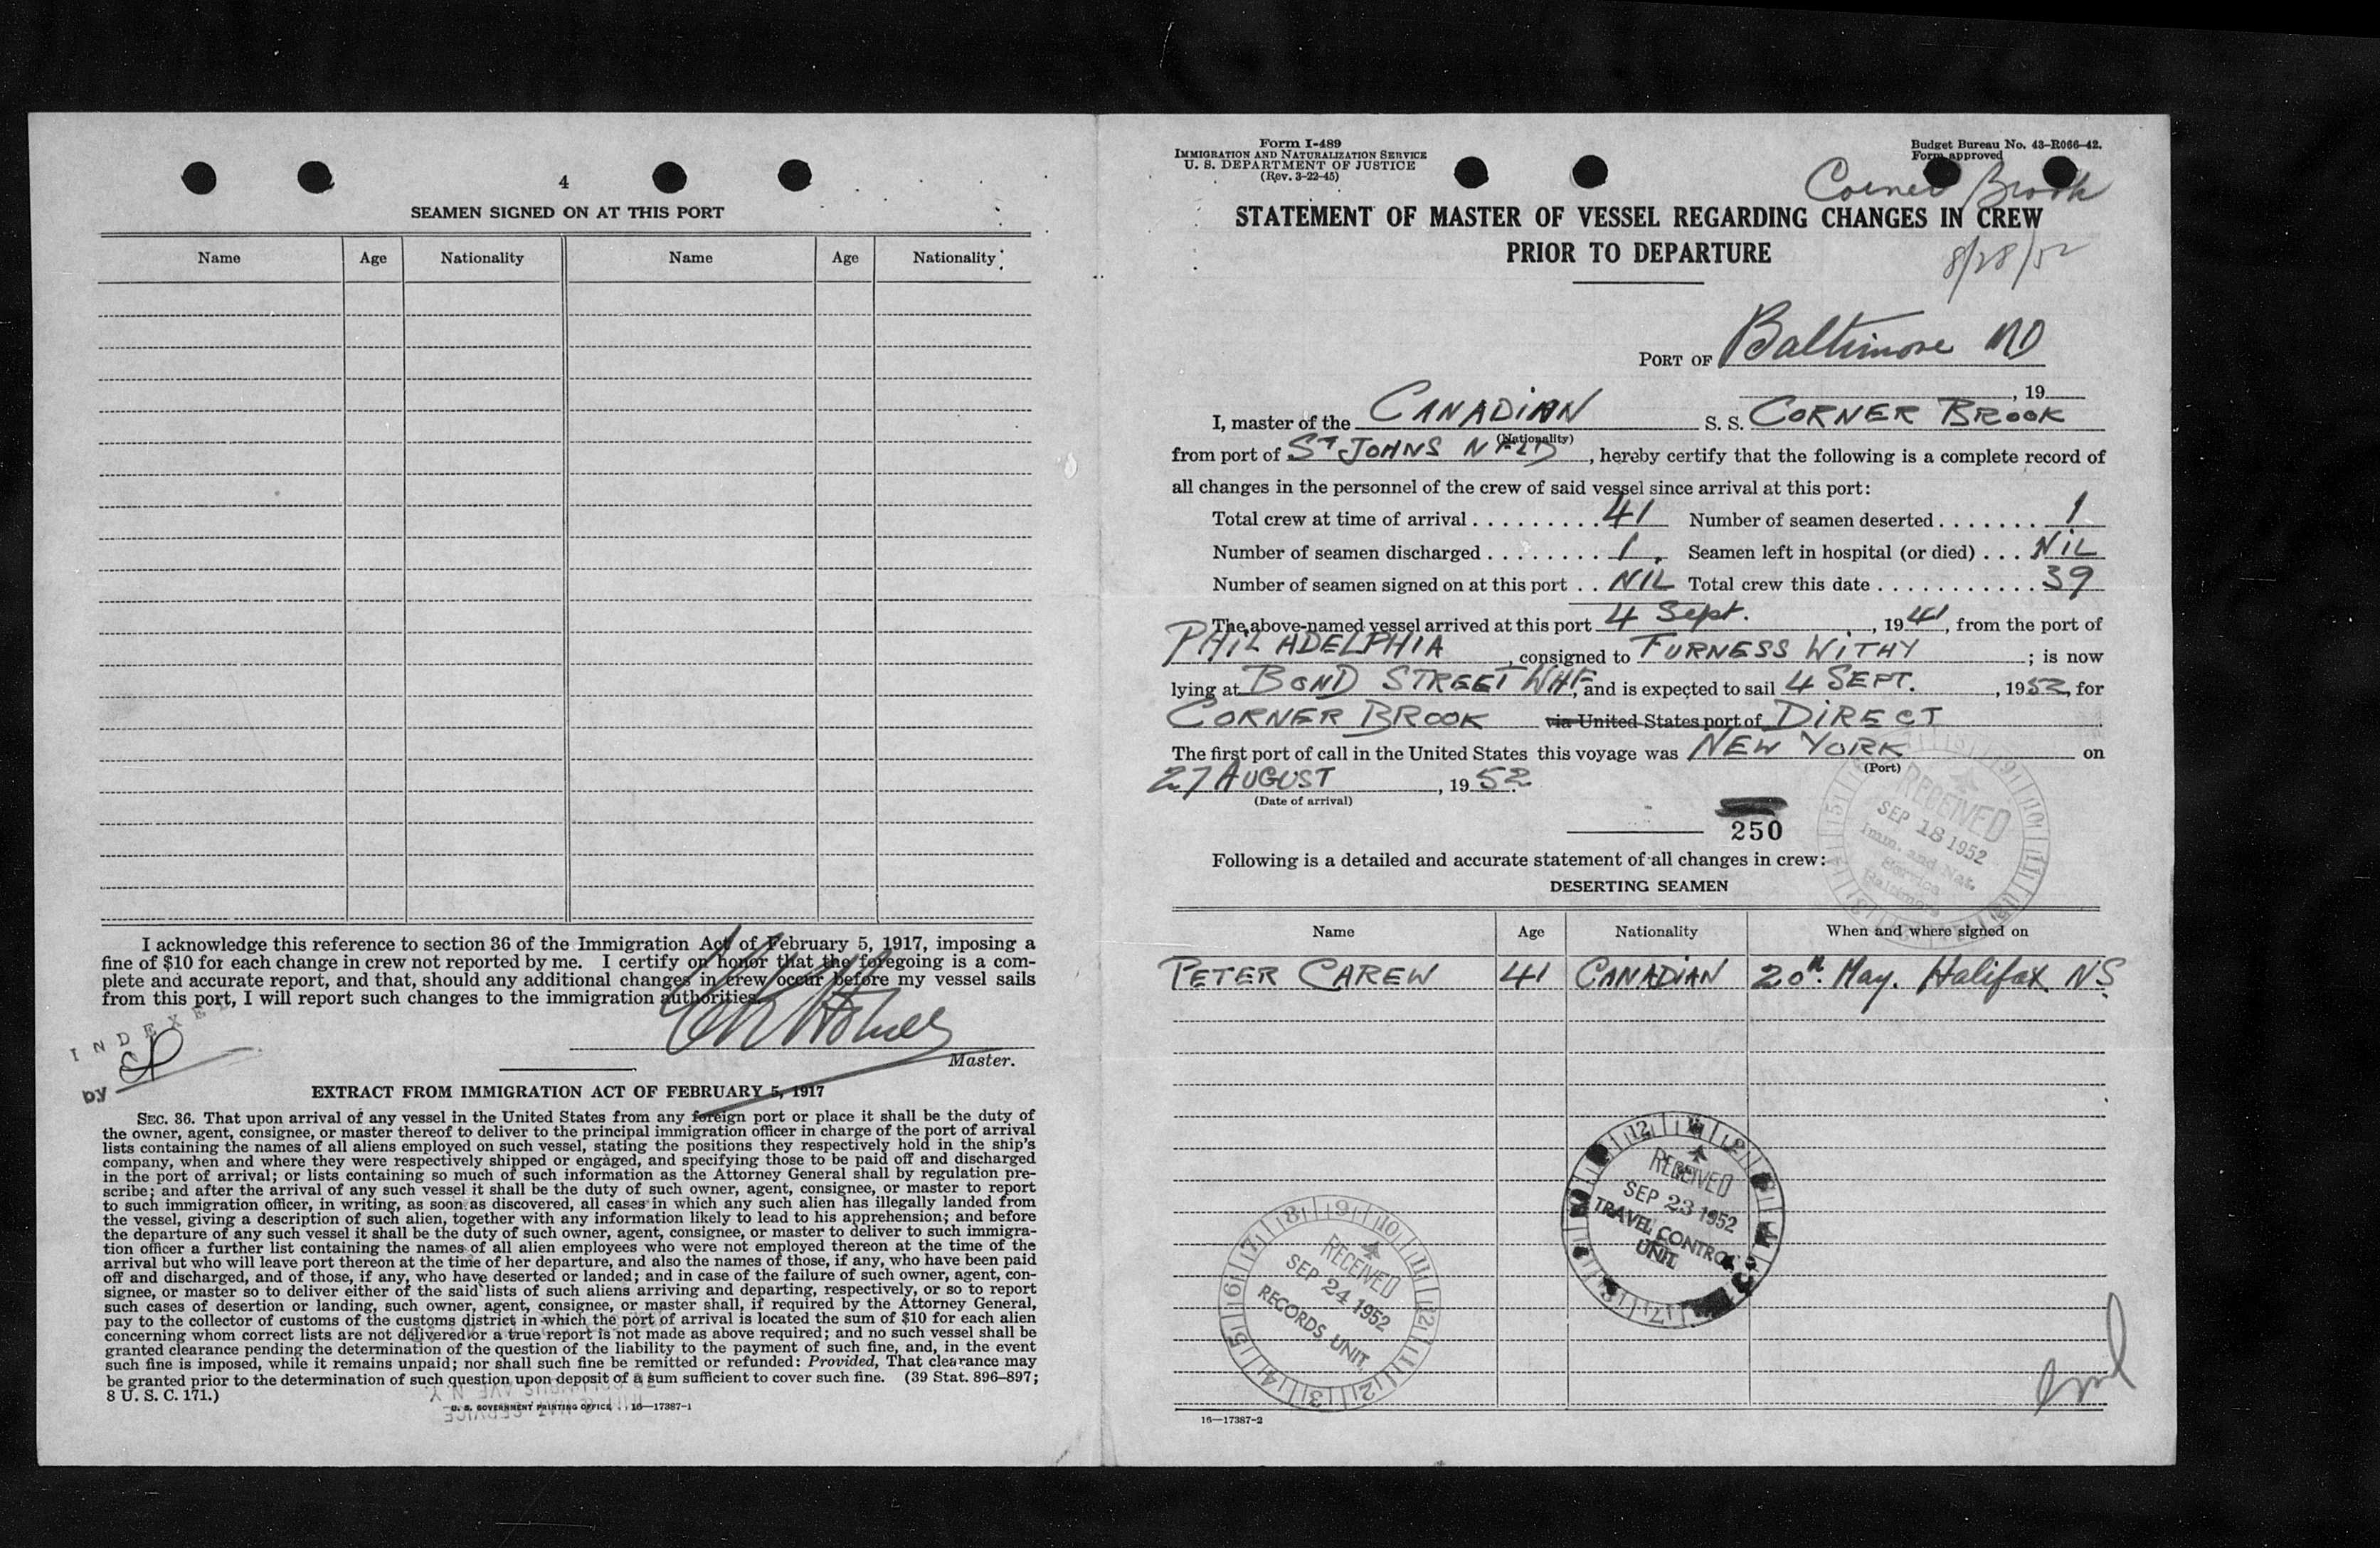 4
SEAMEN SIGNED ON AT THIS PORT
Name Age Nationality Name Age Nationality
I acknowledge this reference to section 36 of the Immigration Act of February 5, 1917, imposing a
fine of $10 for each change in crew not reported by me. I certify on honor that the foregoing is a com-
plete and accurate report, and that, should any additional changes in crew occur before my vessel sails
from this port, I will report such changes to the immigration authorities.
INDEXED
by
Master.
EXTRACT FROM IMMIGRATION ACT OF FEBRUARY 5, 1917
SEC. 36. That upon arrival of any vessel in the United States from any foreign port or place it shall be the duty of
the owner, agent, consignee, or master thereof to deliver to the principal immigration officer in charge of the port of arrival
lists containing the names of all aliens employed on such vessel, stating the positions they respectively hold in the ship's
company, when and where they were respectively shipped or engaged, and specifying those to be paid off and discharged
in the port of arrival; or lists containing so much of such information as the Attorney General shall by regulation pre-
scribe; and after the arrival of any such vessel it shall be the duty of such owner, agent, consignee, or master to report
to such immigration officer, in writing, as soon as discovered, all cases in which any such alien has illegally landed from
the vessel, giving a description of such alien, together with any information likely to lead to his apprehension; and before
the departure of any such vessel it shall be the duty of such owner, agent, consignee, or master to deliver to such immigra-
tion officer a further list containing the names of all alien employees who were not employed thereon at the time of the
arrival but who will leave port thereon at the time of her departure, and also the names of those, if any, who have been paid
off and discharged, and of those, if any, who have deserted or landed; and in case of the failure of such owner, agent, con-
signee, or master so to deliver either of the said lists of such aliens arriving and departing, respectively, or so to report
such cases of desertion or landing, such owner, agent, consignee, or master shall, if required by the Attorney General,
pay to the collector of customs of the customs district in which the port of arrival is located the sum of $10 for each alien
concerning whom correct lists are not delivered or a true report is not made as above required; and no such vessel shall be
granted clearance pending the determination of the question of the liability to the payment of such fine, and, in the event
such fine is imposed, while it remains unpaid; nor shall such fine be remitted or refunded: Provided, That clearance may
be granted prior to the determination of such question upon deposit of a sum sufficient to cover such fine. (39 Stat. 896-897;
8 U. S. C. 171.)
U. S. GOVERNMENT PRINTING OFFICE 16—17387-1
Form I-489
IMMIGRATION AND NATURALIZATION SERVICE
U. S. DEPARTMENT OF JUSTICE
(Rev. 3-22-45)
Budget Bureau No. 43-R066-42.
Form approved
Corner Brook
STATEMENT OF MASTER OF VESSEL REGARDING CHANGES IN CREW
PRIOR TO DEPARTURE
8/28/52
PORT OF Baltimore MD
, 19
I, master of the CANADIAN S. S. CORNER BROOK
(Nationality)
from port of ST JOHNS NFLD, hereby certify that the following is a complete record of
all changes in the personnel of the crew of said vessel since arrival at this port:
Total crew at time of arrival 41 Number of seamen deserted 1
Number of seamen discharged 1 Seamen left in hospital (or died) NIL
Number of seamen signed on at this port NIL Total crew this date 39
The above-named vessel arrived at this port 4 Sept., 1941, from the port of
PHILADELPHIA, consigned to FURNESS WITHY; is now
lying at BOND STREET WHF, and is expected to sail 4 SEPT., 1952, for
CORNER BROOK via United States port of DIRECT
The first port of call in the United States this voyage was NEW YORK on
(Port)
27 AUGUST, 1952
(Date of arrival)
250
RECEIVED
SEP 18 1952
Imm. and Nat.
Service
Baltimore
Following is a detailed and accurate statement of all changes in crew:
DESERTING SEAMEN
Name Age Nationality When and where signed on
PETER CAREW 41 CANADIAN 20th May. Halifax NS.
RECEIVED
SEP 23 1952
TRAVEL CONTROL
UNIT
RECEIVED
SEP 24 1952
RECORDS UNIT
16—17387-2